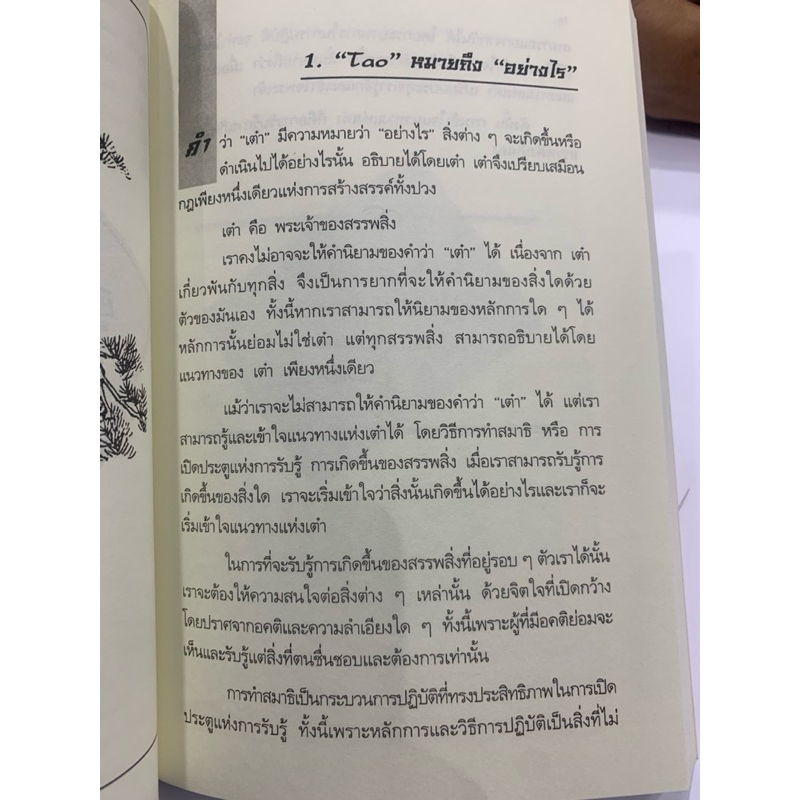 1. “Tao” หมายถึง “อย่างไร”
คำว่า “เต๋า” มีความหมายว่า “อย่างไร” สิ่งต่าง ๆ จะเกิดขึ้นหรือ
ดำเนินไปได้อย่างไรนั้น อธิบายได้โดยเต๋า เต๋าจึงเปรียบเสมือน
กฎเพียงหนึ่งเดียวแห่งการสร้างสรรค์ทั้งปวง
เต๋า คือ พระเจ้าของสรรพสิ่ง
เราคงไม่อาจจะให้คำนิยามของคำว่า “เต๋า” ได้ เนื่องจาก เต๋า
เกี่ยวพันกับทุกสิ่ง จึงเป็นการยากที่จะให้คำนิยามของสิ่งใดด้วย
ตัวของมันเอง ทั้งนี้หากเราสามารถให้นิยามของหลักการใด ๆ ได้
หลักการนั้นย่อมไม่ใช่เต๋า แต่ทุกสรรพสิ่ง สามารถอธิบายได้โดย
แนวทางของ เต๋า เพียงหนึ่งเดียว
แม้ว่าเราจะไม่สามารถให้คำนิยามของคำว่า “เต๋า” ได้ แต่เรา
สามารถรู้และเข้าใจแนวทางแห่งเต๋าได้ โดยวิธีการทำสมาธิ หรือ การ
เปิดประตูแห่งการรับรู้ การเกิดขึ้นของสรรพสิ่ง เมื่อเราสามารถรับรู้การ
เกิดขึ้นของสิ่งใด เราจะเริ่มเข้าใจว่าสิ่งนั้นเกิดขึ้นได้อย่างไรและเราก็จะ
เริ่มเข้าใจแนวทางแห่งเต๋า
ในการที่จะรับรู้การเกิดขึ้นของสรรพสิ่งที่อยู่รอบ ๆ ตัวเราได้นั้น
เราจะต้องให้ความสนใจต่อสิ่งต่าง ๆ เหล่านั้น ด้วยจิตใจที่เปิดกว้าง
โดยปราศจากอคติและความลำเอียงใด ๆ ทั้งนี้เพราะผู้ที่มีอคติย่อมจะ
เห็นและรับรู้แต่สิ่งที่ตนชื่นชอบและต้องการเท่านั้น
การทำสมาธิเป็นกระบวนการปฏิบัติที่ทรงประสิทธิภาพในการเปิด
ประตูแห่งการรับรู้ ทั้งนี้เพราะหลักการและวิธีการปฏิบัติเป็นสิ่งที่ไม่